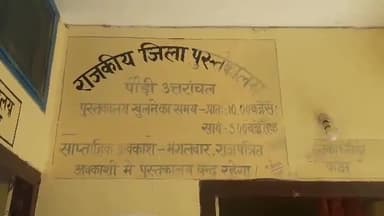 राजकीय जिला पुस्तकालय
पौड़ी उत्तरांचल
पुस्तकालय खुलने का समय - प्रातः 10.00 बजे से
सायं - 5.00 बजे तक
साप्ताहिक अवकाश - मंगलवार, राजपत्रित
अवकाशों में पुस्तकालय बन्द रहेगा।
कक्ष